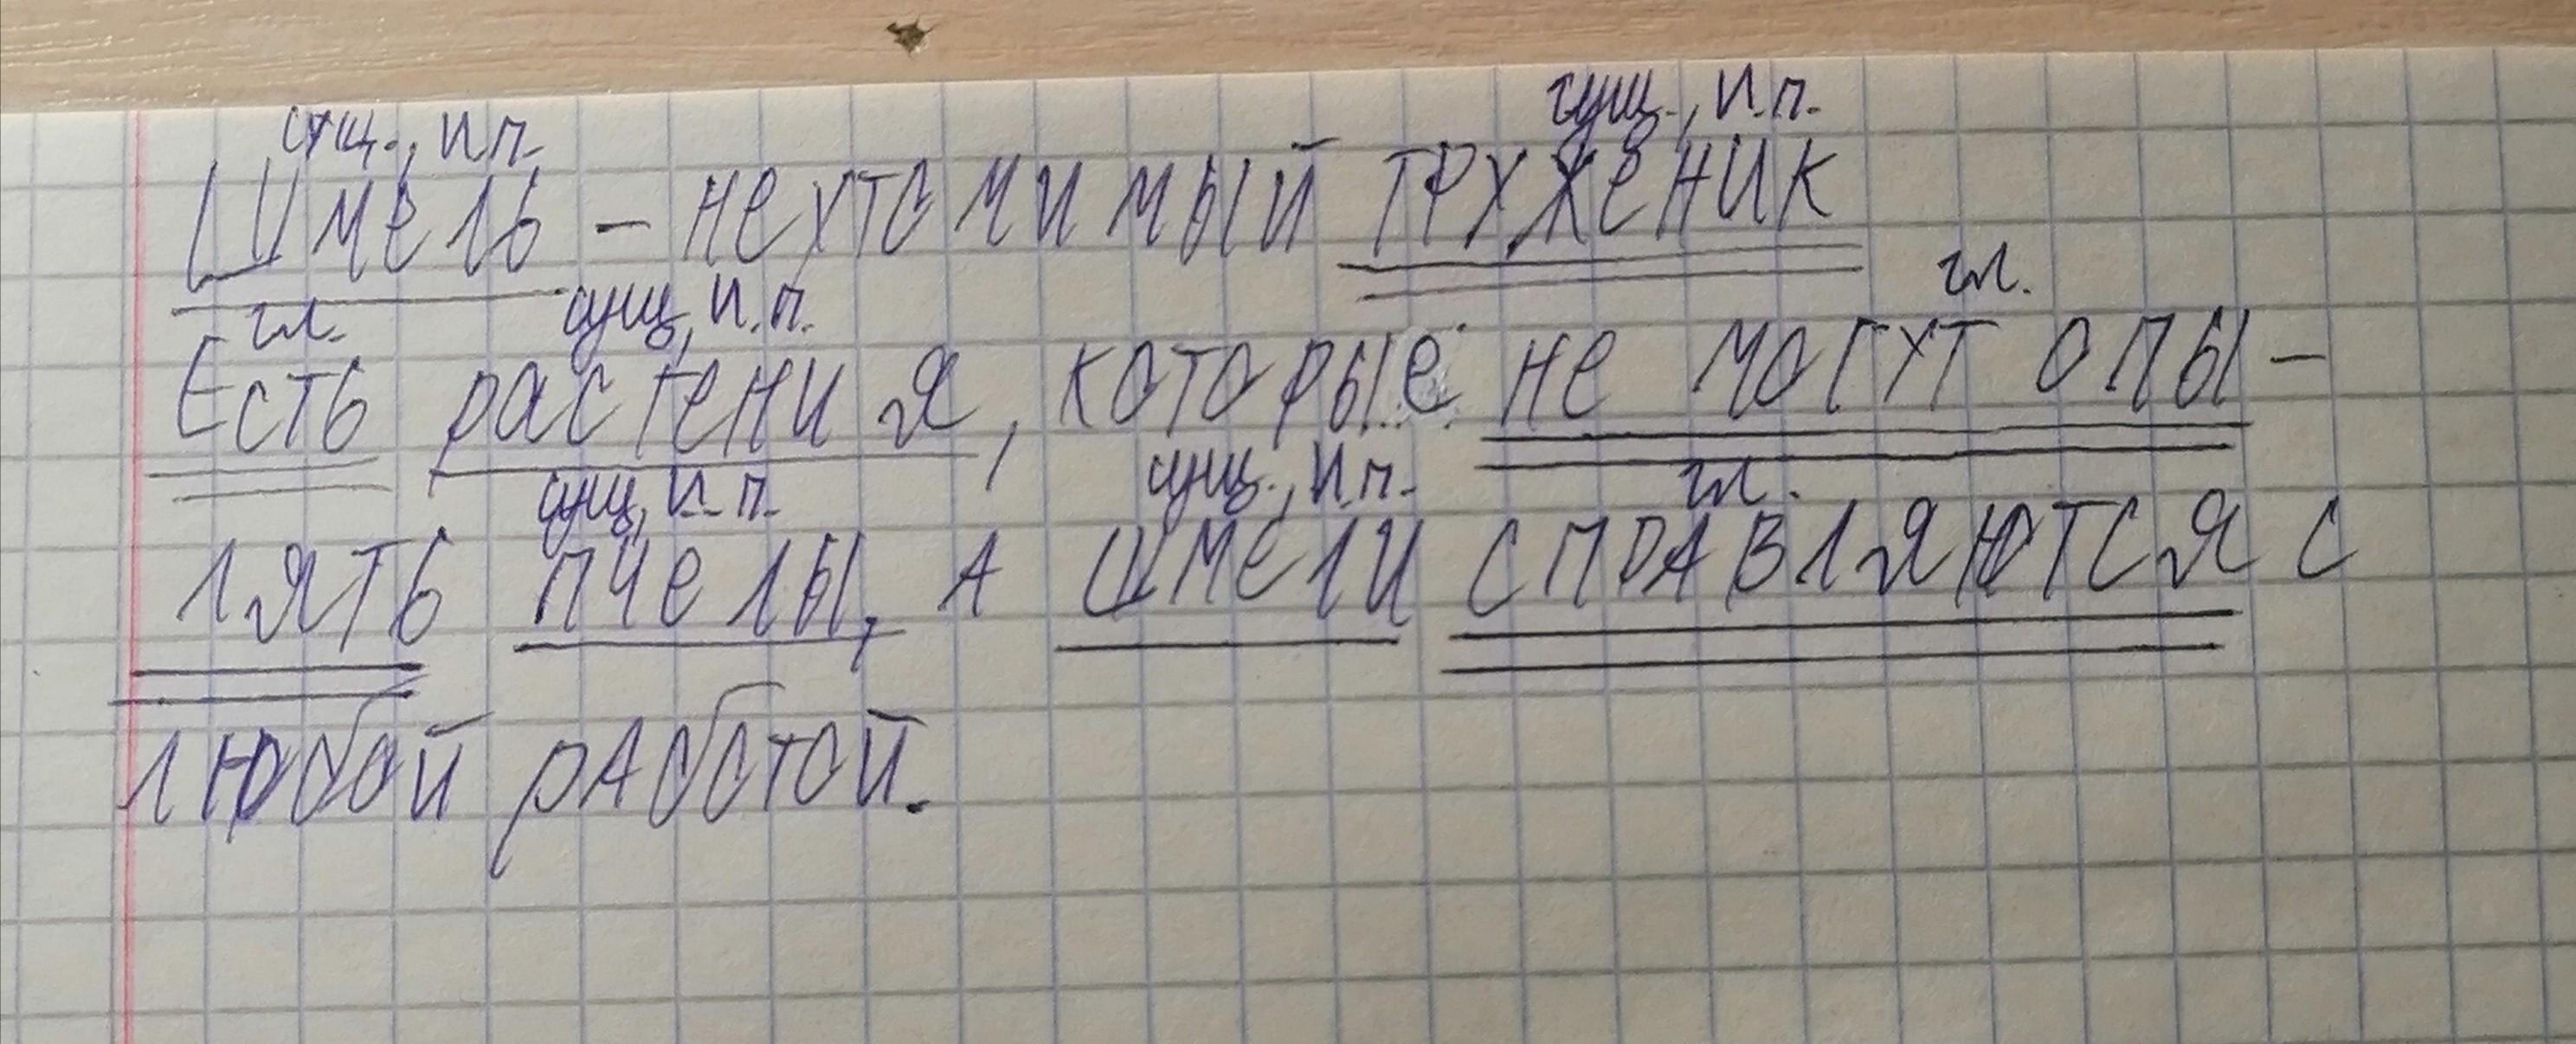 сущ., И.п. сущ., И.п.
Шмель – неутомимый труженик
гл. сущ., И.п. гл.
Есть растения, которые не могут опы-
сущ., И.п. сущ., И.п. гл.
лять пчелы, а шмели справляются с
любой работой.